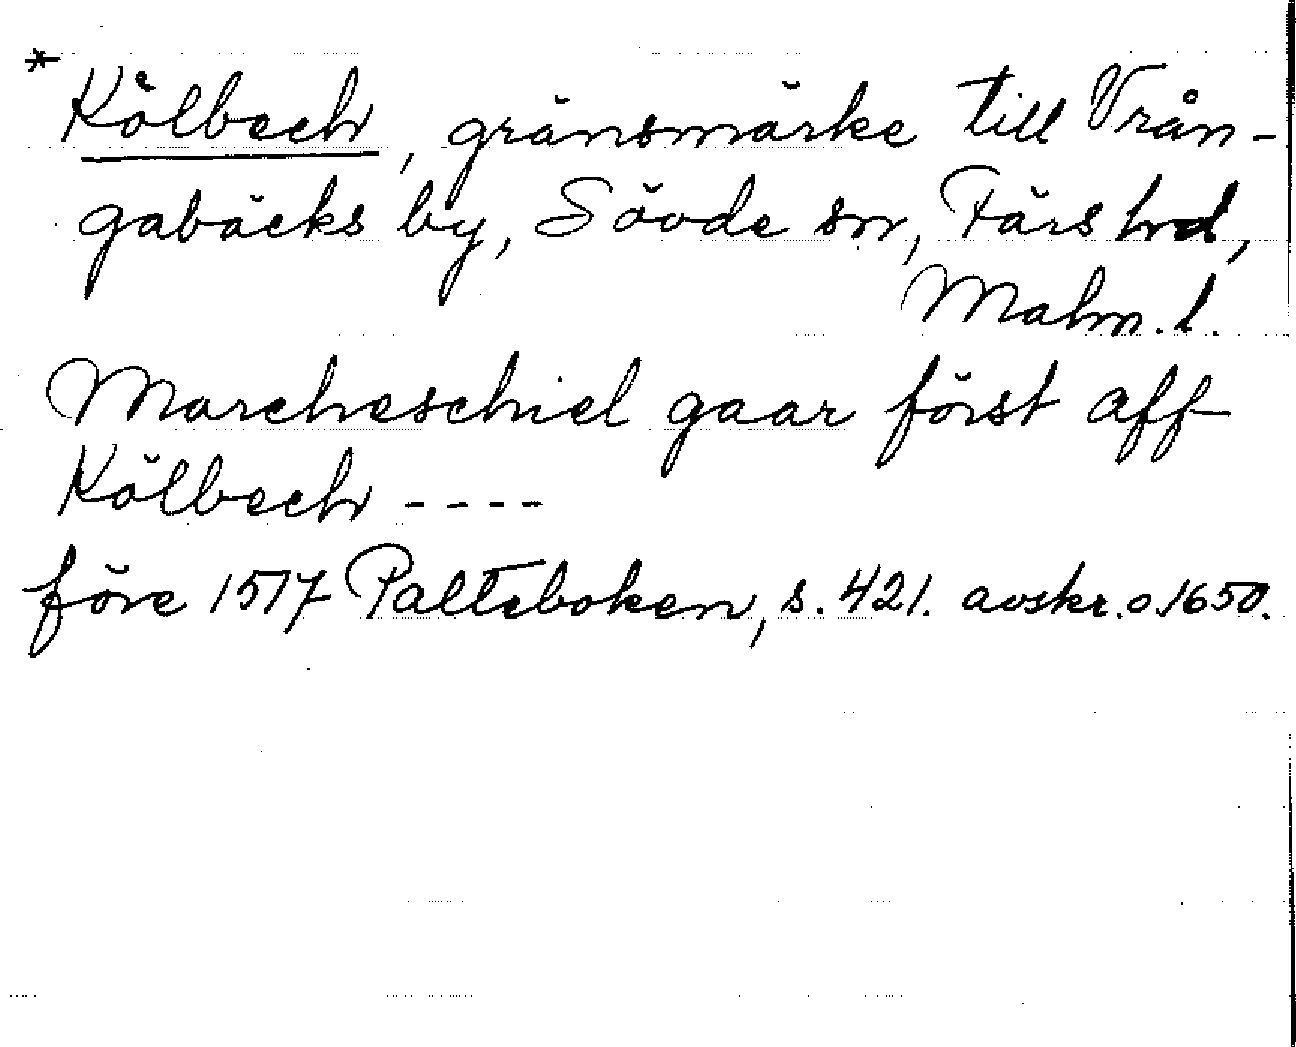 * Kölbech, gränsmärke till Vrån-
gabäcks by, Sövde sn, Färs hrd,
Malm. l.
Marcheschiel gaar först aff
Kölbech ----
före 1517 Palteboken, s. 421. avskr. o. 1650.